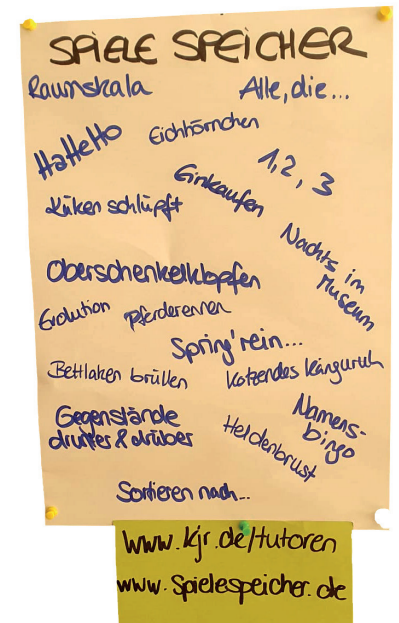 SPIELE SPEICHER
Raumskala
Alle, die...
HaHeHo
Eichhörnchen
1, 2, 3
Einkaufen
Küken schlüpft
Nachts im
Museum
Oberschenkelklopfen
Evolution
Pferderennen
Spring' rein...
Bettlaken brüllen
Kotzendes Känguruh
Gegenstände
drunter & drüber
Namens-
bingo
Heldenbrust
Sortieren nach...
www.kjr.de/tutoren
www.spielespeicher.de